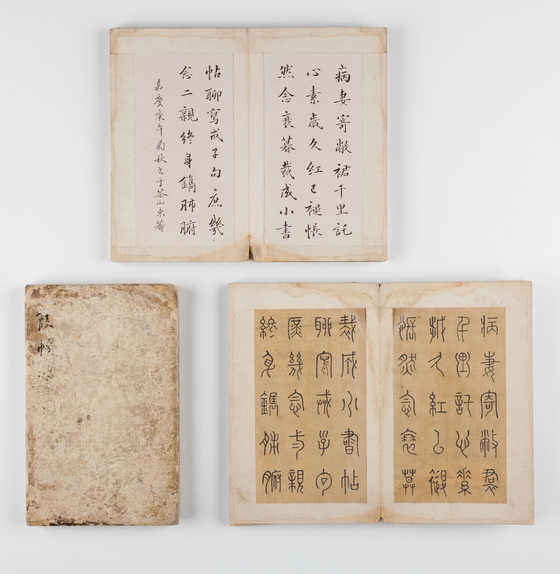 病妻寄敝裙千里託
心素歲久紅已褪悵
然念衰暮裁成小書
帖聊寫戒子句庶幾
念二親終身鐫肺腑
嘉慶庚午菊秋書于茶山東菴
霞帔
病妻寄敝裙
千里託心素
歲久紅已褪
悵然念衰暮
裁成小書帖
聊寫戒子句
庶幾念二親
終身鐫肺腑